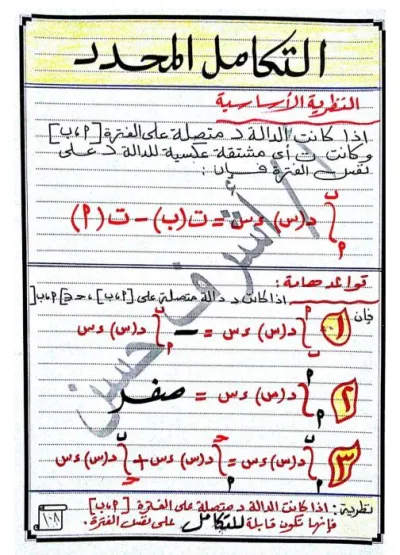 التكامل المحدد
النظرية الأساسية
اذا كانت الدالة د متصلة على الفترة [أ،ب]
وكانت ت أي مشتقة عكسية للدالة د على
نفس الفترة فإن :
∫ب أ د(س) ءس = ت(ب) - ت(أ)
قواعد هامة :
اذا كانت د دالة متصلة على [أ،ب]، حـ∈]أ،ب[
فإن
١ ∫أ ب د(س) ءس = - ∫ب أ د(س) ءس
٢ ∫أ أ د(س) ءس = صفر
٣ ∫ب أ د(س) ءس = ∫حـ أ د(س) ءس + ∫ب حـ د(س) ءس
نظرية : اذا كانت الدالة د متصلة على الفترة [أ،ب]
فإنها تكون قابلة للتكامل على نفس الفترة.
١٠٨
أ/ أشرف حسن